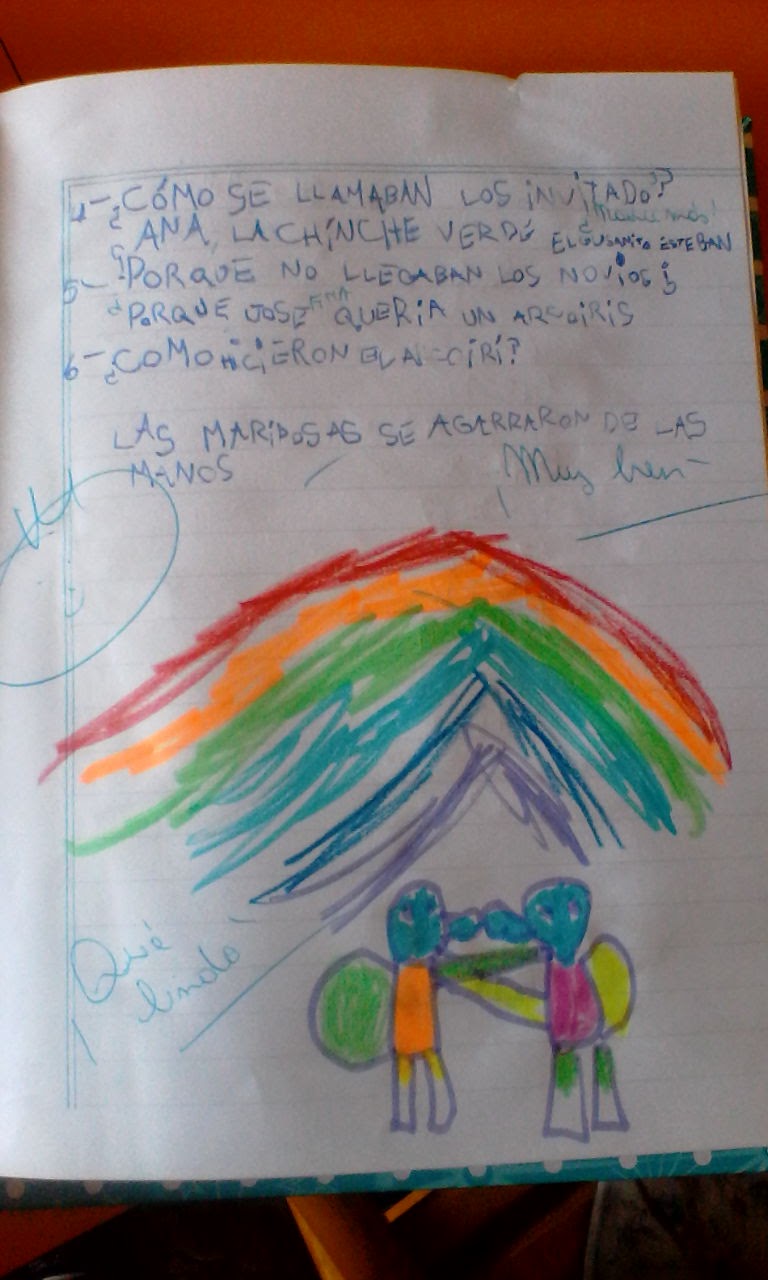 4-¿CÓMO SE LLAMABAN LOS INVITADO??
¿Nadie más!
ANA, LA CHINCHE VERDE EL GUSANITO ESTEBAN
5-¿PORQUE NO LLEGABAN LOS NOVIOS?
PORQUE JOSEFINA QUERIA UN ARCOIRIS
6-¿COMO HICIERON EL ARCOIRI?
LAS MARIPOSAS SE AGARRARON DE LAS
MANOS
¡Muy bien
¡Qué
lindo!